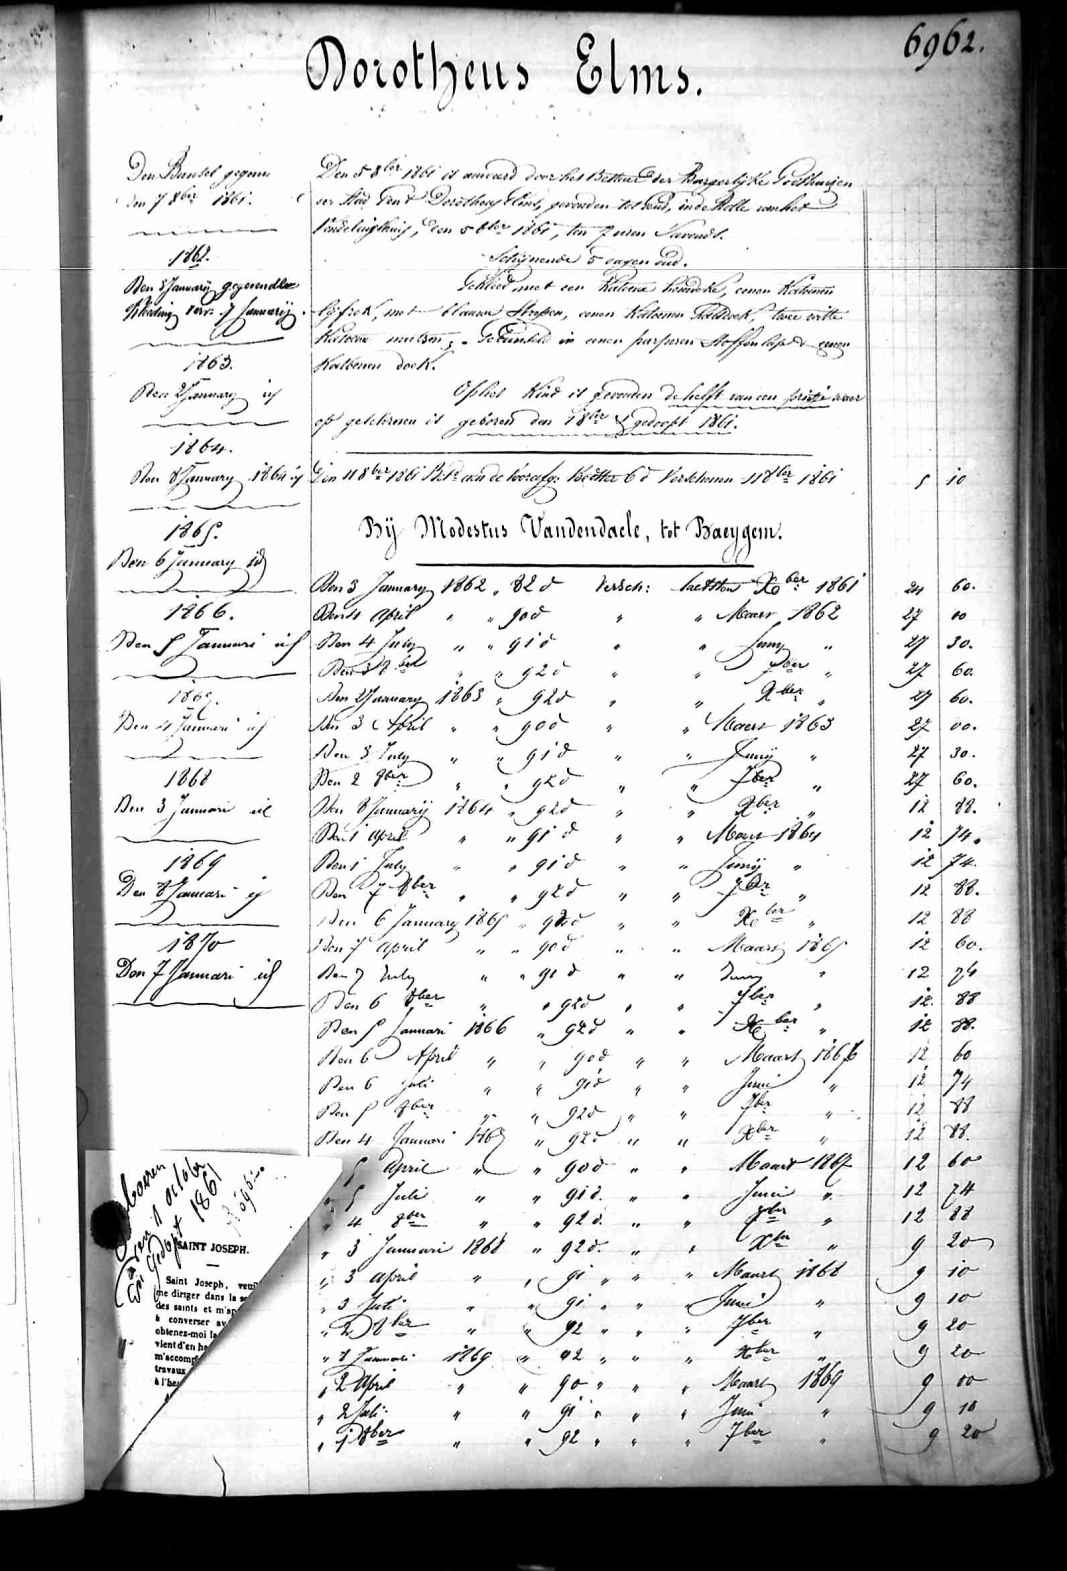 6962.
Dorotheus Elms.
Den Bansel gegeven
den 7 8ber 1861.
1862.
Den 8 January gegeven
kleeding 7 January.
1863.
Den 2 January id
1864.
Den 8 January 1864 id
1865.
Den 6 January id
1866.
Den 5 Januari id
1867.
Den 4 Januari id
1868
Den 3 Januari id
1869
Den 8 Januari id
1870
Den 7 Januari id
Den 5 8ber 1861 is aanvaard door het Bestuur der Burgerlijke Godshuizen
der Stad Gend Dorotheus Elms, gevonden tot Gend, in de Rolle van het
Vondelinghuis, den 5 8ber 1861, ten 7 uren S'avonds.
Schijnende 5 dagen oud.
Gekleed met een Katoene hemdeke, eenen Katoenen
lijfrok, met blauwe Strepen, eenen Katoenen Halsdoek, twee witte
Katoene mutsen, Gebunseld in eenen purperen Stoffen lap & eenen
Katoenen doek.
Op het Kind is gevonden de helft van een printje waer
op geschreven is geboren den 1 8ber & gedoopt 1861.
Den 11 8ber 1861 6 d Verschenen 11 8ber 1861 5 10
Bij Modestus Vandendaele, tot Baeygem.
Den 3 January 1862 " 82 d Versch: laetsten Xber 1861 24 60.
Den 4 April " " 90 d " " Maart 1862 27 00
Den 4 July " " 91 d " " Juny " 27 30.
Den 3 8ber " " 92 d " " 7ber " 27 60.
Den 2 January 1863 " 92 d " " Xber " 27 60.
Den 3 April " " 90 d " " Maart 1863 27 00.
Den 3 July " " 91 d " " Junij " 27 30.
Den 2 8ber " " 92 d " " 7ber " 27 60.
Den 8 Januarij 1864 " 92 d " " Xber " 12 88.
Den 1 April " " 91 d " " Maart 1864 12 74.
Den 1 July " " 91 d " " Junij " 12 74.
Den 7 8ber " " 92 d " " 7ber " 12 88.
Den 6 January 1865 " 92 d " " Xber " 12 88
Den 7 April " " 90 d " " Maart 1865 12 60.
Den 7 July " " 91 d " " Juny " 12 74
Den 6 8ber " " 92 d " " 7ber " 12 88
Den 5 Januari 1866 " 92 d " " Xber " 12 88.
Den 6 April " " 90 d " " Maart 1866 12 60
Den 6 Juli " " 91 d " " Juni " 12 74
Den 5 8ber " " 92 d " " 7ber " 12 88
Den 4 Januari 1867 " 92 d " " Xber " 12 88.
5 April " " 90 d " " Maart 1867 12 60
" 5 Juli " " 91 d. " " Juni " 12 74
" 4 8ber " " 92 d. " " 7ber " 12 88
" 3 Januari 1868 " 92 d. " " Xber " 9 20
" 3 April " " 91 " " " Maart 1868 9 10
" 3 Juli " " 91 " " " Juni " 9 10
" 2 8ber " " 92 " " " 7ber " 9 20
" 8 Januari 1869 " 92 " " " Xber " 9 20
" 2 April " " 90 " " " Maart 1869 9 00
" 2 Juli " " 91 " " " Juni " 9 10
" 1 8ber " " 92 " " " 7ber " 9 20
Geboren
den 1 october
en gedopt 1861
SAINT JOSEPH.
Saint Joseph,
me diriger dans la
des saints et
à converser
obtenez-moi
vient d'en
travaux